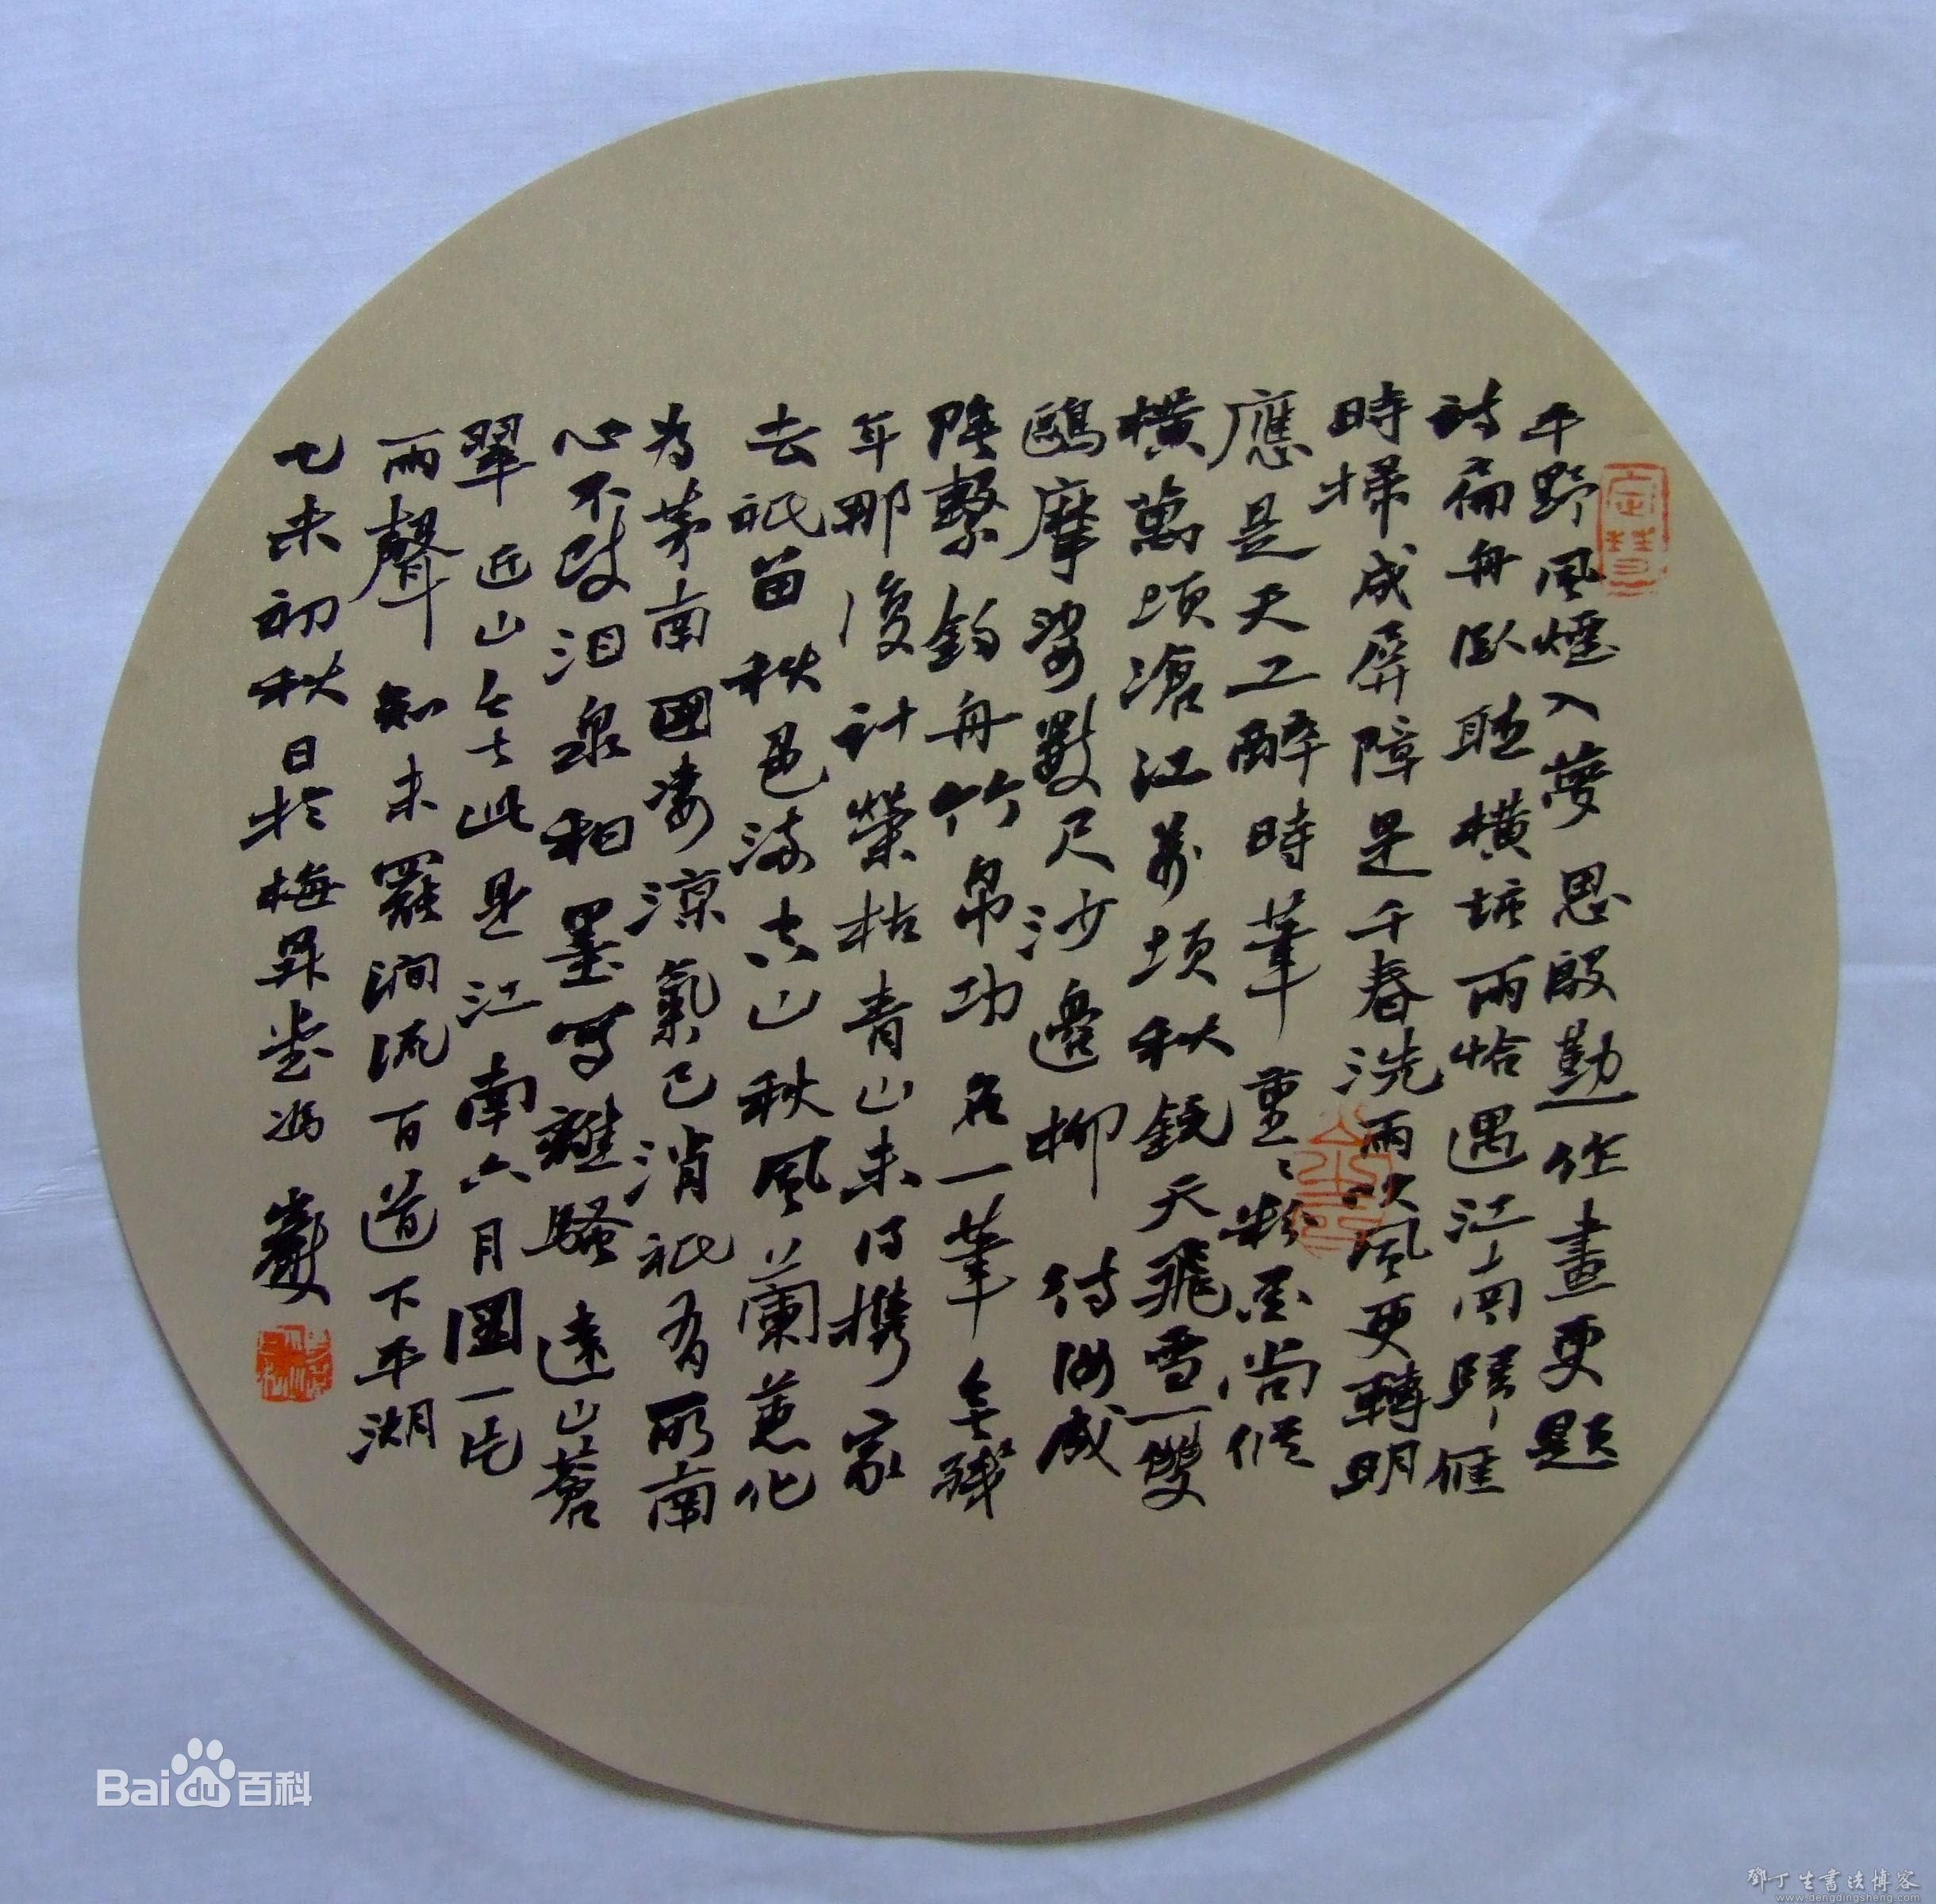 平野風煙入夢思殷勤作畫更題
詩扁舟臥聽橫塘雨恰遇江南歸雁
時掃成屏障是千春洗雨吹風更轉明
應是天工醉時筆重重粉墨尚縱
橫萬頃滄江萬頃秋鏡天飛雪一雙
鷗摩挲數尺沙邊柳待汝成
陰繫釣舟竹帛功名一筆無殘
年那復計榮枯青山未得攜家
去祇留秋色滿空山秋風蘭蕙化
為茅南國凄涼氣已消祇有所南
心不改淚泉和墨寫離騷遠山蒼
翠近山無此是江南六月圖一片
雨聲知未罷澗流百道下平湖
乙未初秋日於梅㫷堂馮
Baidu百科
鄧丁生書法博客
www.dengdingsheng.com